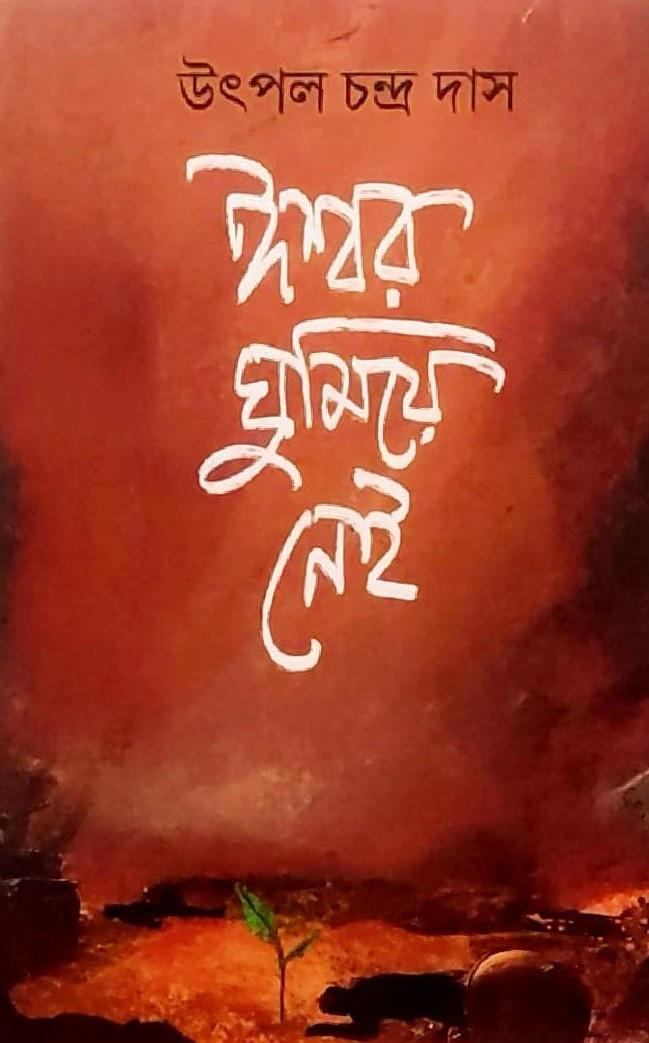 উৎপল চন্দ্র দাস
ঈশ্বর
ঘুমিয়ে
নেই